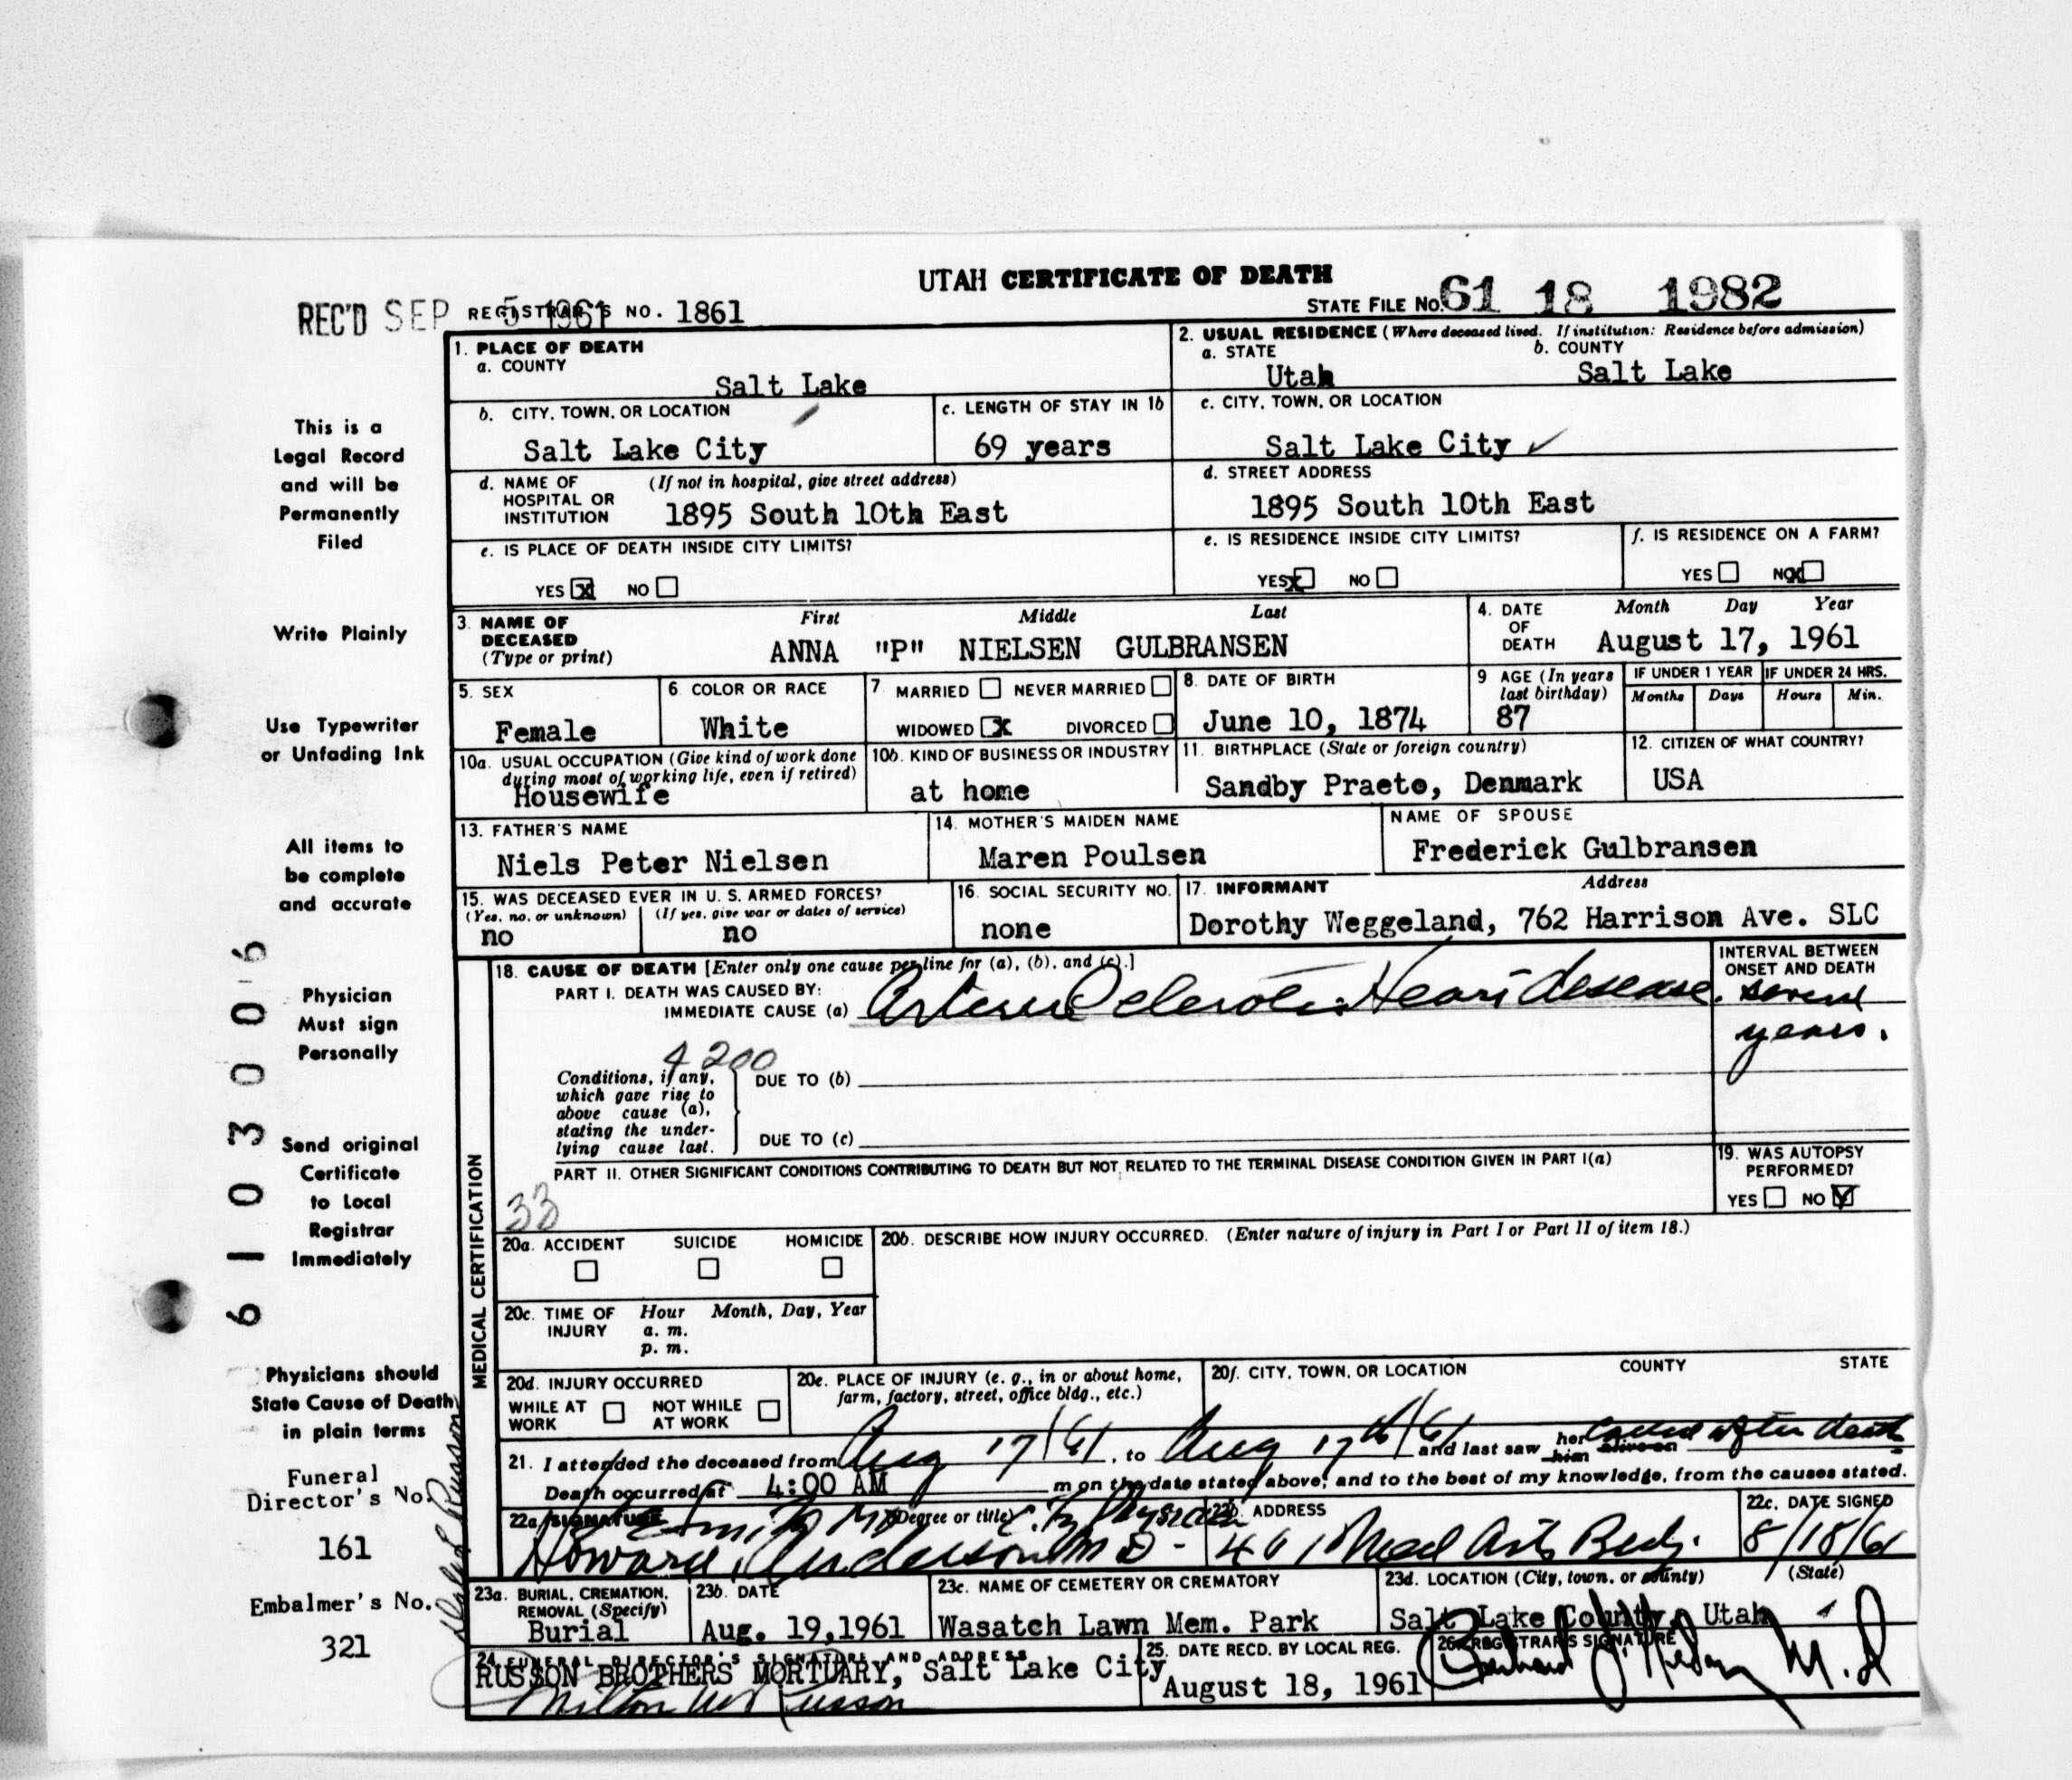 UTAH CERTIFICATE OF DEATH
REC'D SEP 5 1961 REGISTRAR'S NO. 1861
STATE FILE NO. 61 18 1982
1. PLACE OF DEATH
a. COUNTY
Salt Lake
2. USUAL RESIDENCE (Where deceased lived. If institution: Residence before admission)
a. STATE
Utah
b. COUNTY
Salt Lake
b. CITY, TOWN, OR LOCATION
Salt Lake City
c. LENGTH OF STAY IN 1b
69 years
c. CITY, TOWN, OR LOCATION
Salt Lake City ✓
d. NAME OF HOSPITAL OR INSTITUTION (If not in hospital, give street address)
1895 South 10th East
d. STREET ADDRESS
1895 South 10th East
e. IS PLACE OF DEATH INSIDE CITY LIMITS?
YES X NO
e. IS RESIDENCE INSIDE CITY LIMITS?
YES X NO
f. IS RESIDENCE ON A FARM?
YES NO X
3. NAME OF DECEASED (Type or print)
First Middle Last
ANNA "P" NIELSEN GULBRANSEN
4. DATE OF DEATH
Month Day Year
August 17, 1961
5. SEX
Female
6. COLOR OR RACE
White
7. MARRIED NEVER MARRIED
WIDOWED X DIVORCED
8. DATE OF BIRTH
June 10, 1874
9 AGE (In years last birthday)
87
IF UNDER 1 YEAR
Months Days
IF UNDER 24 HRS.
Hours Min.
10a. USUAL OCCUPATION (Give kind of work done during most of working life, even if retired)
Housewife
10b. KIND OF BUSINESS OR INDUSTRY
at home
11. BIRTHPLACE (State or foreign country)
Sandby Praeto, Denmark
12. CITIZEN OF WHAT COUNTRY?
USA
13. FATHER'S NAME
Niels Peter Nielsen
14. MOTHER'S MAIDEN NAME
Maren Poulsen
NAME OF SPOUSE
Frederick Gulbransen
15. WAS DECEASED EVER IN U. S. ARMED FORCES?
(Yes, no, or unknown) (If yes, give war or dates of service)
no no
16. SOCIAL SECURITY NO.
none
17. INFORMANT Address
Dorothy Weggeland, 762 Harrison Ave. SLC
MEDICAL CERTIFICATION
18. CAUSE OF DEATH [Enter only one cause per line for (a), (b), and (c).]
PART I. DEATH WAS CAUSED BY:
IMMEDIATE CAUSE (a) Arterio Sclerotic Heart disease.
INTERVAL BETWEEN ONSET AND DEATH
several
years.
4200
Conditions, if any, which gave rise to above cause (a), stating the underlying cause last.
DUE TO (b)
DUE TO (c)
PART II. OTHER SIGNIFICANT CONDITIONS CONTRIBUTING TO DEATH BUT NOT RELATED TO THE TERMINAL DISEASE CONDITION GIVEN IN PART I(a)
33
19. WAS AUTOPSY PERFORMED?
YES NO X
20a. ACCIDENT SUICIDE HOMICIDE
20b. DESCRIBE HOW INJURY OCCURRED. (Enter nature of injury in Part I or Part II of item 18.)
20c. TIME OF INJURY
Hour Month, Day, Year
a. m.
p. m.
20d. INJURY OCCURRED
WHILE AT WORK NOT WHILE AT WORK
20e. PLACE OF INJURY (e. g., in or about home, farm, factory, street, office bldg., etc.)
20f. CITY, TOWN, OR LOCATION COUNTY STATE
21. I attended the deceased from Aug 17/61, to Aug 17th/61 and last saw her him alive on called after death
Death occurred at 4:00 AM m on the date stated above; and to the best of my knowledge, from the causes stated.
22a. SIGNATURE (Degree or title) Physician
Howard Anderson M D -
22b. ADDRESS
401 Med Arts Bldg.
22c. DATE SIGNED
8/18/61
23a. BURIAL, CREMATION, REMOVAL (Specify)
Burial
23b. DATE
Aug. 19,1961
23c. NAME OF CEMETERY OR CREMATORY
Wasatch Lawn Mem. Park
23d. LOCATION (City, town, or county) (State)
Salt Lake County, Utah
24. FUNERAL DIRECTOR'S SIGNATURE AND ADDRESS
RUSSON BROTHERS MORTUARY, Salt Lake City
Milton W Russon
25. DATE RECD. BY LOCAL REG.
August 18, 1961
26. REGISTRAR'S SIGNATURE
M.D
This is a
Legal Record
and will be
Permanently
Filed
Write Plainly
Use Typewriter
or Unfading Ink
All items to
be complete
and accurate
Physician
Must sign
Personally
Send original
Certificate
to Local
Registrar
Immediately
Physicians should
State Cause of Death
in plain terms
Funeral
Director's No.
161
Embalmer's No.
321
Russon
6103006